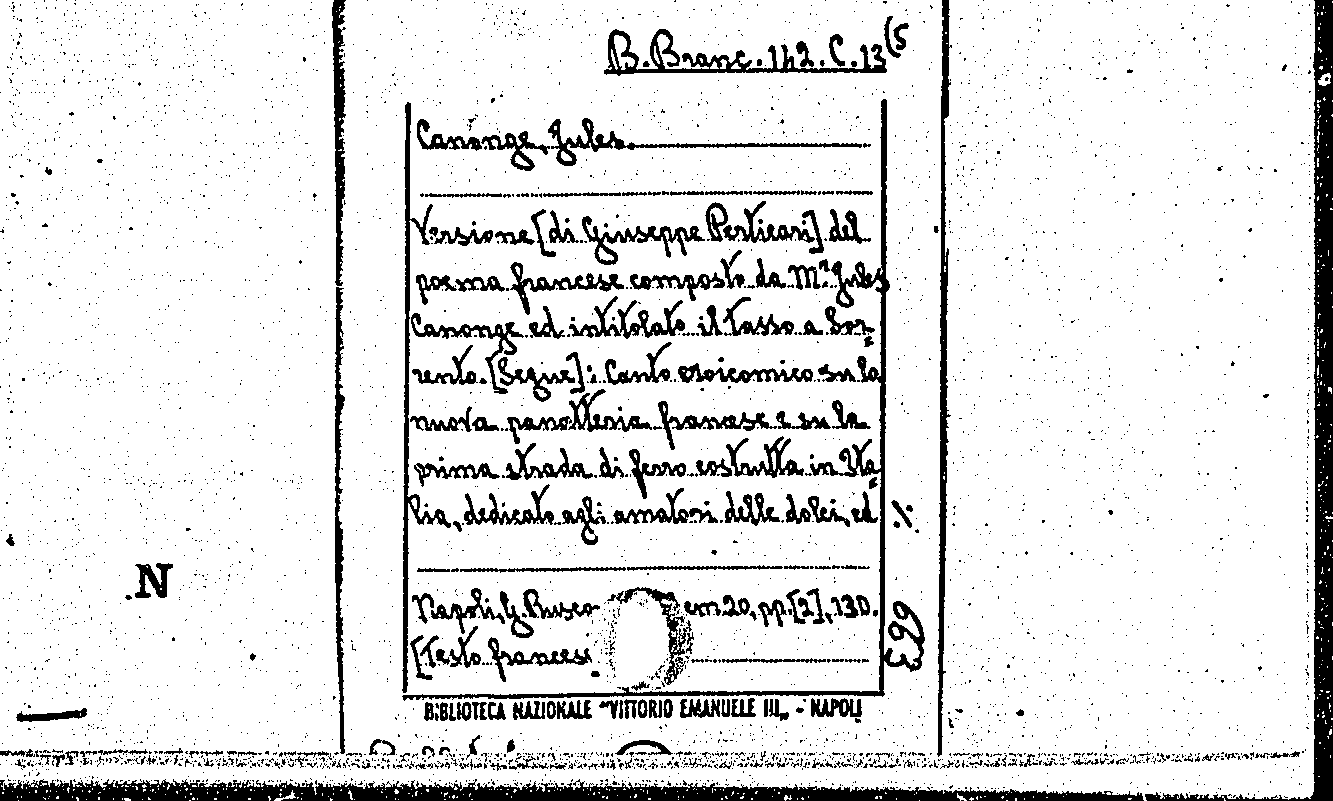 B. Branc. 142. C. 13 (5
Canonge, Jules.
Versione [di Giuseppe Perticari] del
poema francese composto da Mr. Jules
Canonge ed intitolato il Tasso a Sor=
rento. [Segue]: Canto eroicomico su la
nuova panotteria francese e su la
prima strada di ferro costrutta in Ita=
lia, dedicato agli amatori delle dolci, ed ./.
Napoli, G. Rusco cm. 20, pp. [2], 130.
[Testo francese
663
N
BIBLIOTECA NAZIONALE "VITTORIO EMANUELE III„ - NAPOLI